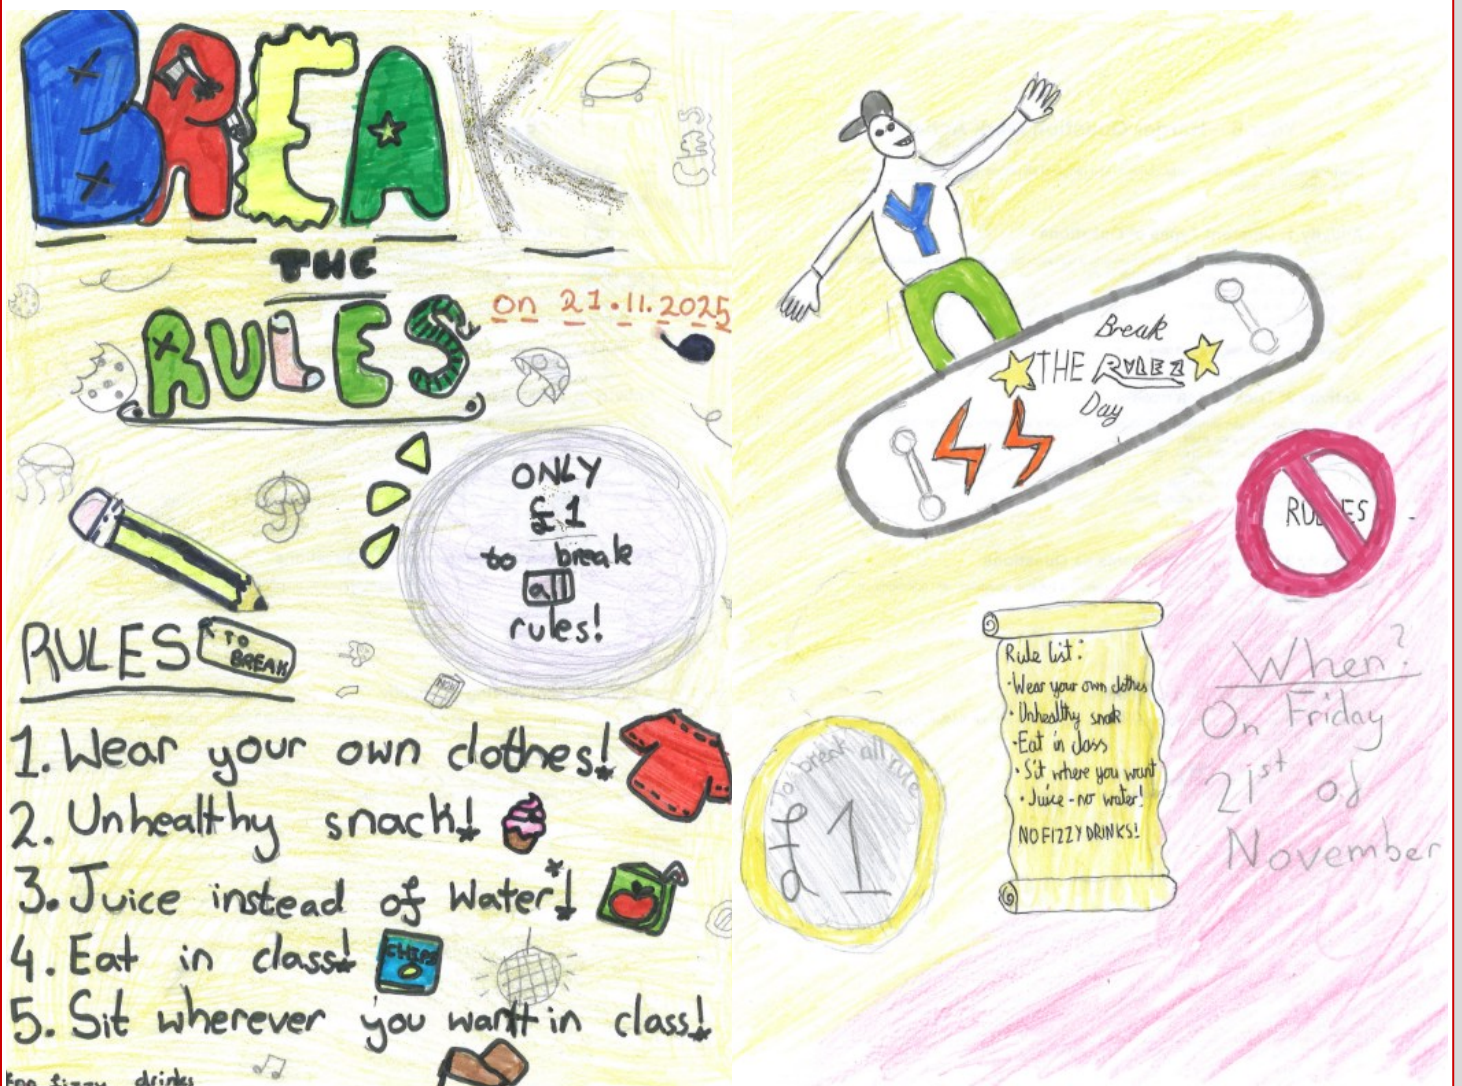 BREAK
THE
RULES
on 21.11.2025
ONLY
£1
to break
all
rules!
RULES TO
BREAK
1. Wear your own clothes!
2. Unhealthy snack!
3. Juice instead of Water*!
4. Eat in class!
CHIPS
5. Sit wherever you want in class!
fizzy drinks
Y
Break
THE RULEZ
Day
RULES
Rule list:
• Wear your own clothes
• Unhealthy snak
• Eat in class
• Sit where you want
• Juice - no water!
NO FIZZY DRINKS!
When?
On Friday
21st of
November
break all rules
1